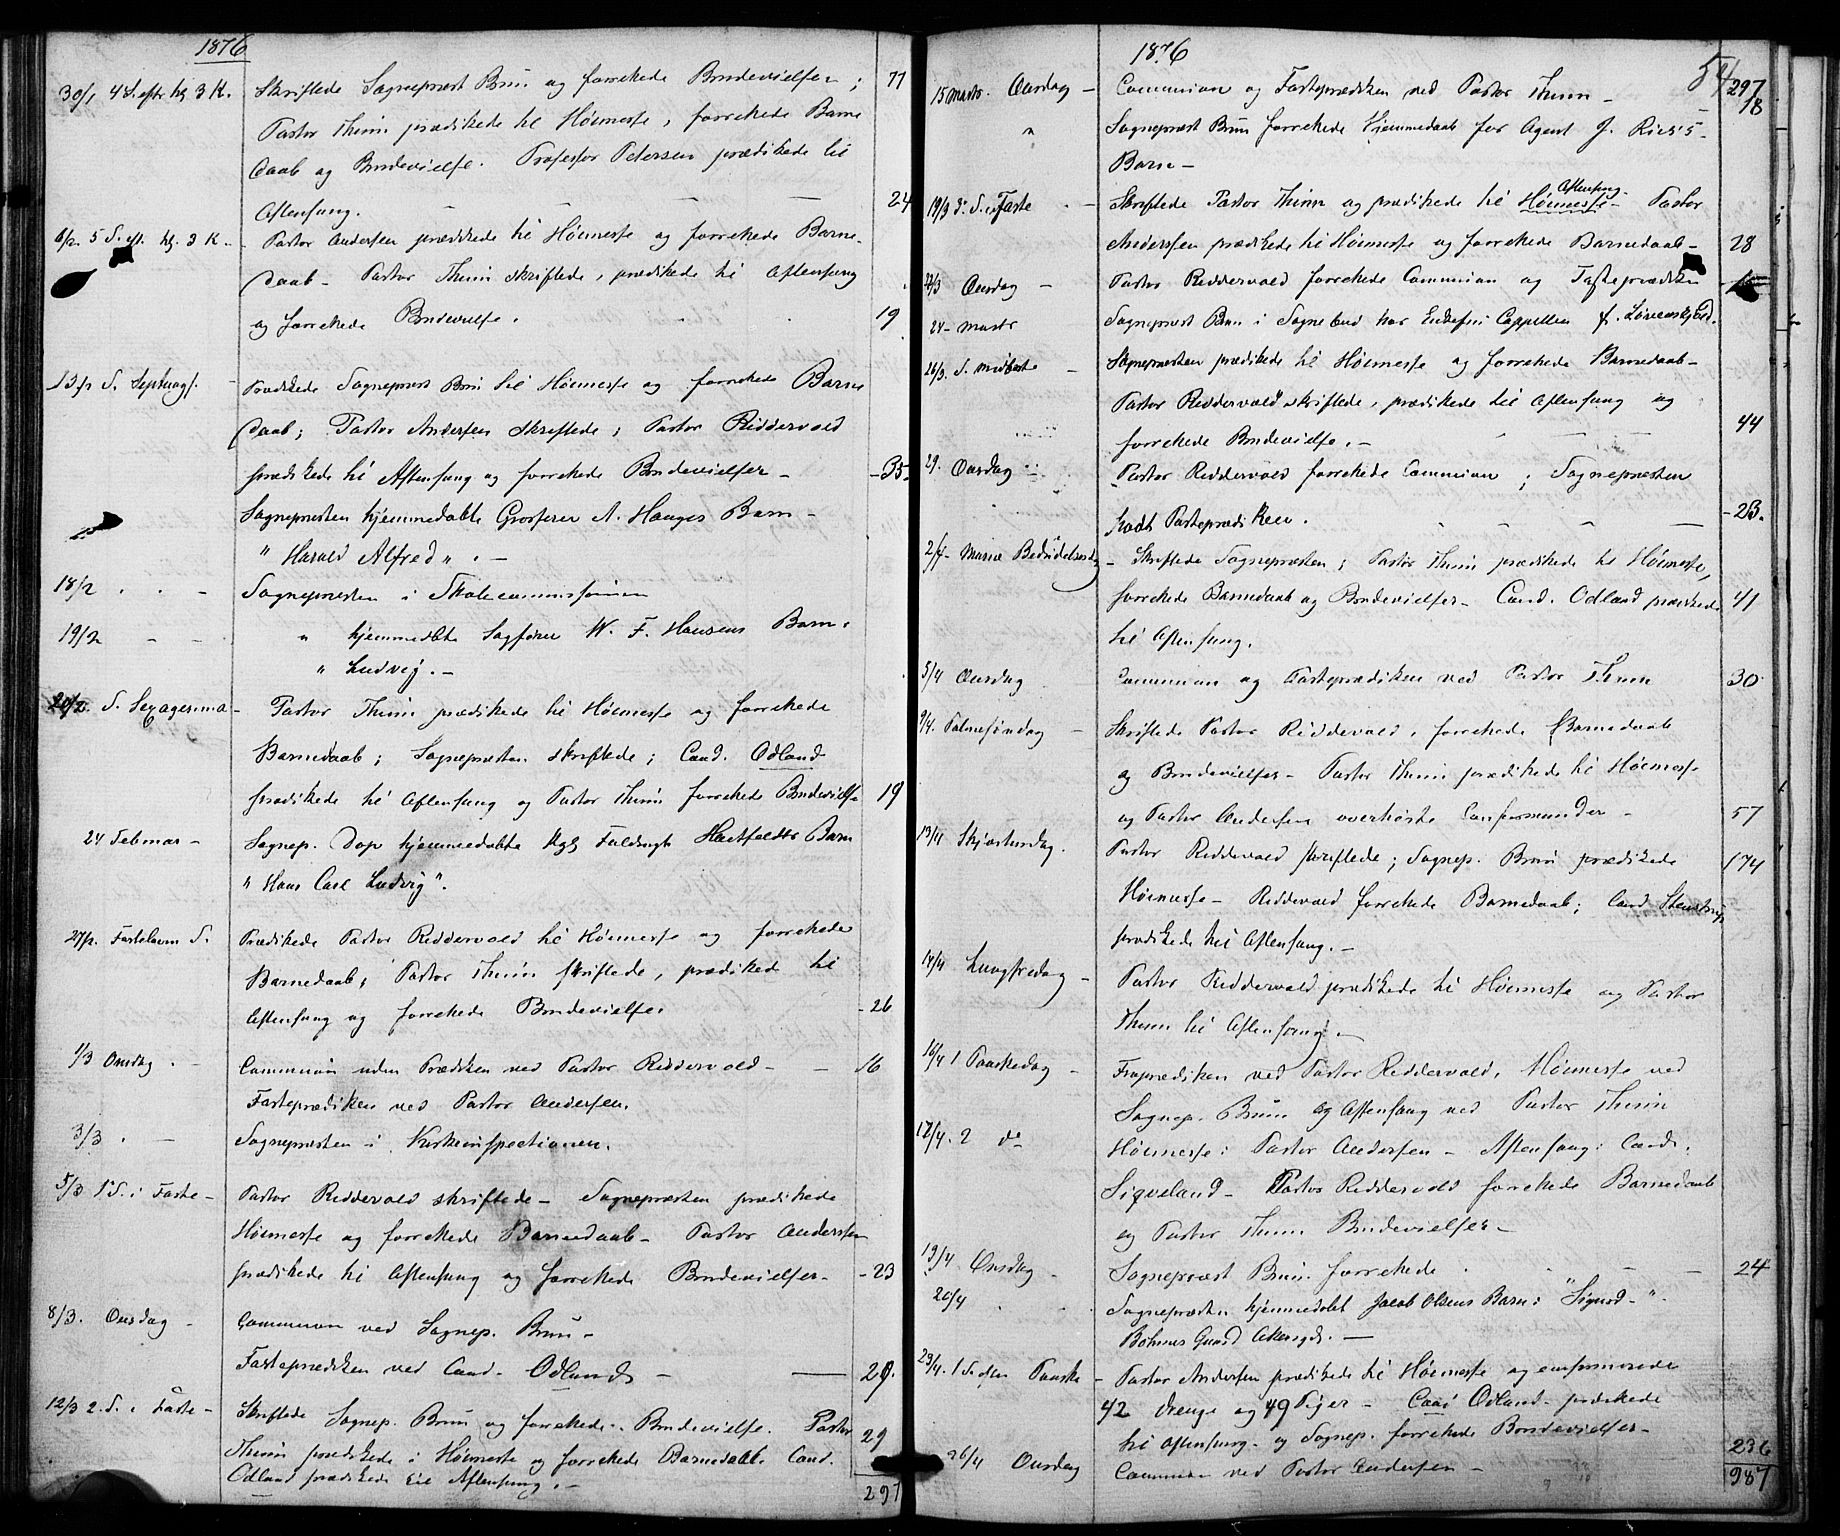 1876
30/1 4 S. efter hg 3 K. Skriftede Sognepræst Bruun og forrettede Brudevielser; 77
Pastor Thinn prædikede til Høimesse, forrettede Barne
daab og Brudevielse. Professor Petersen prædikede til
Aftensang. — 24
6/2. 5 S. eft. hg. 3 K. - Pastor Andersen prædikede til Høimesse og forrettede Barne-
daab - Pastor Thinn skriftede, prædikede til Aftensang
og forrettede Brudevielse. 19
13/2 S. Septuag. - Prædikede Sognepræst Bruun til Høimesse og forrettede Barne
daab; Pastor Andersen skriftede; Pastor Riddervold
prædikede til Aftensang og forrettede Brudevielser - 35
Sognepræsten hjemmedøbte Grosserer A. Hauges Barn -
" Harald Alfred " . -
18/2 . . - Sognepræsten i Skolecommissionen
19/2 - - " hjemmedøbte Sagfører W. F. Hansens Barn.
" Ludvig. -
20/2. S. Sexagesima - Pastor Thinn prædikede til Høimesse og forrettede
Barnedaab; Sognepræsten skriftede; Cand. Odland
prædikede til Aftensang og Pastor Thinn forrettede Brudevielse 19
24 Februar - Sognep. hjemmedøbte Barn
" Hans Carl Ludvig".
27/2. Fastelavn S. Prædikede Pastor Riddervold til Høimesse og forrettede
Barnedaab; Pastor Thinn skriftede, prædiked til
Aftensang og forrettede Brudevielse. - 26
1/3 Onsdag . - Communion uden Prædiken ved Pastor Riddervold - - 16
Fasteprædiken ved Pastor Andersen.
3/3 . - Sognepræsten i Kirkeinspectionen.
5/3 1 S. i Faste - Pastor Riddervold skriftede - Sognepræsten prædikede
Høimesse og forrettede Barnedaab - Pastor Andersen
prædikede til Aftensang og forrettede Brudevielser - - 23
8/3. Onsdag - Communion ved Sognep. Bruun -
Fasteprædiken ved Cand. Odland - — 29.
12/3 2. S. i Faste - Skriftede Sognep. Bruun og forrettede Brudevielse. Pastor 29
Thinn prædikede i Høimesse og forrettede Barnedaab. Cand.
Odland prædikede til Aftensang. - 297
1876 54
297
15 Marts. Onsdag - Communion og Fasteprædiken ved Pastor Thinn - 18
" Sognepræst Bruun forrettede Hjemmedaab for Agent J. Riis's -
Barn -
19/3 3. S. i Faste - Skriftede Pastor Thinn og prædikede til Høimesse Aftensang - Pastor
Andersen prædikede til Høimesse og forrettede Barnedaab - 28
22/3 Onsdag - Pastor Riddervold forrettede Communion og Fasteprædiken
24 - Marts Sognepræst Bruun i Sognebud hos Enkefru Cappelen f. Løvenskjold.
26/3. S. Midfaste - Sognepræsten prædikede til Høimesse og forrettede Barnedaab -
Pastor Riddervold skriftede, prædikede til Aftensang og
forrettede Brudevielse. - 44
29. Onsdag Pastor Riddervold forrettede Communion; Sognepræsten
holdt Fasteprædiken. - 23.
2/4 - Mariæ Bebudelsesdag - Skriftede Sognepræsten; Pastor Thinn prædikede til Høimesse,
forrettede Barnedaab og Brudevielser - Cand. Odland prædikede 41
til Aftensang.
5/4 Onsdag Communion og Fasteprædiken ved Pastor Thinn 30
9/4. Palmesøndag - Skriftede Pastor Riddervold, forrettede Barnedaab
og Brudevielser - Pastor Thinn prædikede til Høimesse
og Pastor Andersen overhørte Confirmander - 57
13/4 Skjærtorsdag. Pastor Riddervold skriftede; Sognep. Bruun prædikede 174
Høimesse - Riddervold forrettede Barnedaab; Cand Stenstrup
prædikede til Aftensang. -
14/4 Langfredag - Pastor Riddervold prædikede til Høimesse og Pastor
Thinn til Aftensang. -
16/4 1 Paaskedag - Froprædiken ved Pastor Riddervold, Høimesse ved
Sognep. Bruun og Aftensang ved Pastor Thinn
17/4. 2 do Høimesse: Pastor Andersen - Aftensang: Cand.
Siqveland - Pastor Riddervold forrettede Barnedaab
og Pastor Thinn Brudevielser -
19/4 Onsdag - Sognepræst Bruun forrettede . - - 24
20/4 . . Sognepræsten hjemmedøbt Jacob Olsens Barn: "Sigurd - ".
Bøhmers Gaard Akersgd. —
23/4. 1 S. efter Paaske - Pastor Andersen prædikede til Høimesse og confirmerede
42 Drenge og 49 Piger - Cand Odland prædikede
til Aftensang - og Sognep. forrettede Brudevielser -
26/4 Onsdag Communion ved Pastor Andersen - 236
987